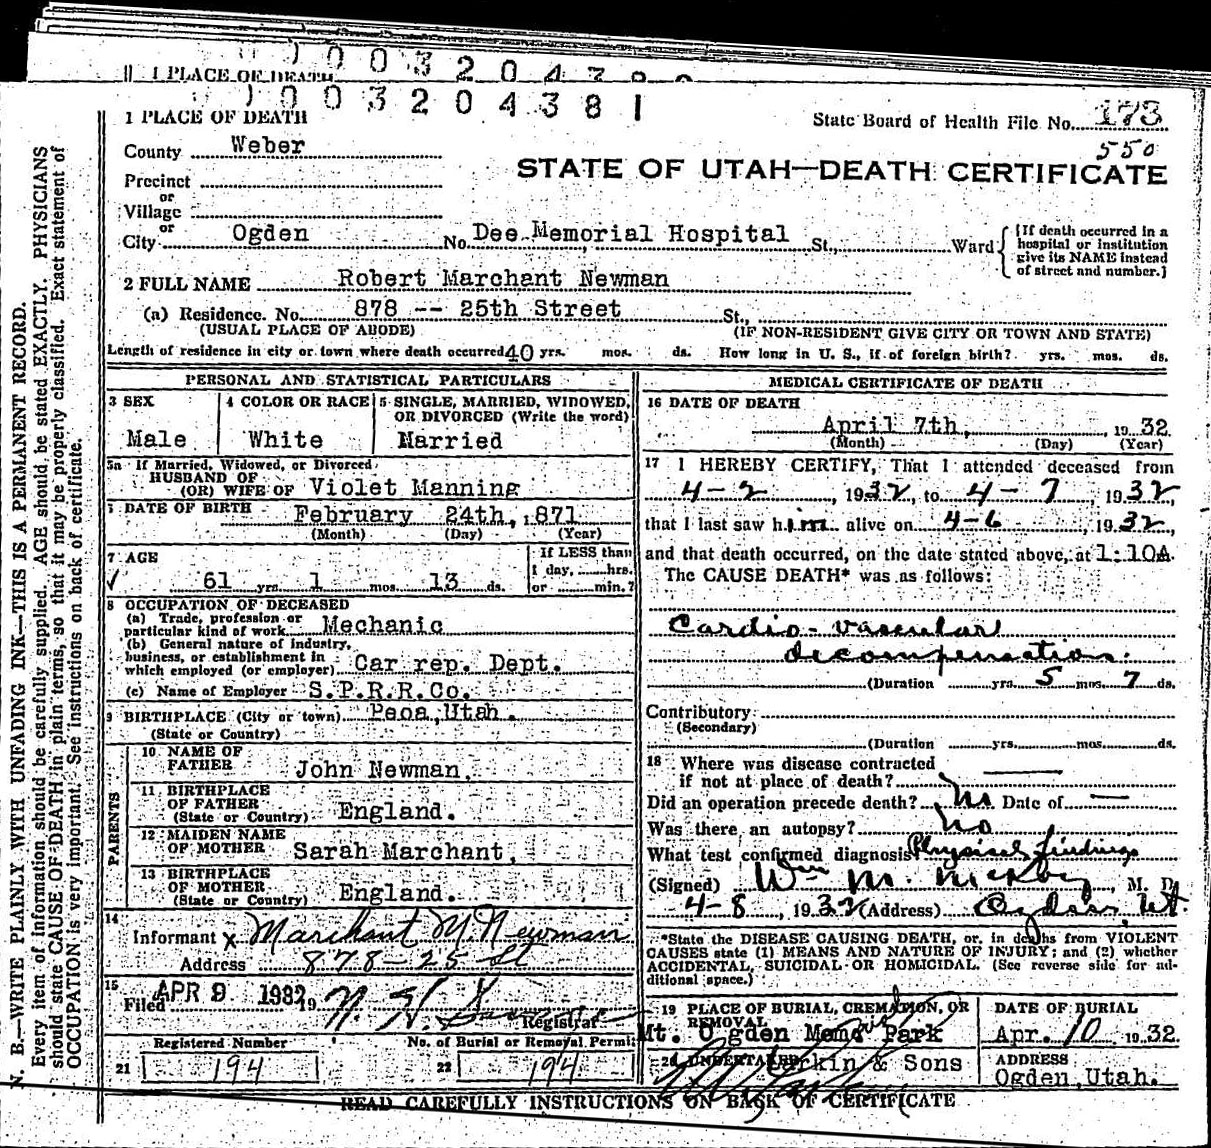 1 PLACE OF DEATH
003204381
1 PLACE OF DEATH
State Board of Health File No. 173
550
County Weber
STATE OF UTAH—DEATH CERTIFICATE
Precinct
or
Village
or
City Ogden No. Dee Memorial Hospital St., Ward
[If death occurred in a hospital or institution give its NAME instead of street and number.]
2 FULL NAME Robert Marchant Newman
(a) Residence. No. 878 -- 25th Street St.,
(USUAL PLACE OF ABODE) (IF NON-RESIDENT GIVE CITY OR TOWN AND STATE)
Length of residence in city or town where death occurred 40 yrs. mos. ds. How long in U. S., if of foreign birth? yrs. mos. ds.
PERSONAL AND STATISTICAL PARTICULARS
3 SEX
Male
4 COLOR OR RACE
White
5 SINGLE, MARRIED, WIDOWED, OR DIVORCED (Write the word)
Married
5a If Married, Widowed, or Divorced
HUSBAND OF
(OR) WIFE OF Violet Manning
DATE OF BIRTH February 24th, 1871
(Month) (Day) (Year)
7 AGE
61 yrs. 1 mos. 13 ds.
If LESS than
1 day, hrs.
or min.?
8 OCCUPATION OF DECEASED
(a) Trade, profession or
particular kind of work Mechanic
(b) General nature of industry,
business, or establishment in
which employed (or employer) Car rep. Dept.
(c) Name of Employer S.P.R.R.Co.
9 BIRTHPLACE (City or town) Peoa, Utah.
(State or Country)
PARENTS
10 NAME OF
FATHER John Newman.
11 BIRTHPLACE
OF FATHER
(State or Country) England.
12 MAIDEN NAME
OF MOTHER Sarah Marchant.
13 BIRTHPLACE
OF MOTHER
(State or Country) England.
14
Informant x Marchant M. Newman
Address 878-25 St
15
Filed APR 9 1932 19
Registrar
Registered Number No. of Burial or Removal Permit
21 194 22 194
MEDICAL CERTIFICATE OF DEATH
16 DATE OF DEATH
April 7th, 1932
(Month) (Day) (Year)
17 I HEREBY CERTIFY, That I attended deceased from
4-2, 1932, to 4-7, 1932,
that I last saw him alive on 4-6, 1932,
and that death occurred, on the date stated above, at 1:10A.
The CAUSE DEATH* was as follows:
Cardio-vascular
decompensation.
(Duration yrs. 5 mos. 7 ds.
Contributory
(Secondary)
(Duration yrs. mos. ds.
18 Where was disease contracted
if not at place of death?
Did an operation precede death? No Date of —
Was there an autopsy? No
What test confirmed diagnosis Physical findings
(Signed) Wm M. , M. D.
4-8, 1932 (Address) Ogden, Ut.
*State the DISEASE CAUSING DEATH, or, in deaths from VIOLENT
CAUSES state (1) MEANS AND NATURE OF INJURY; and (2) whether
ACCIDENTAL, SUICIDAL OR HOMICIDAL. (See reverse side for ad-
ditional space.)
19 PLACE OF BURIAL, CREMATION, OR REMOVAL
Mt. Ogden Memo Park
DATE OF BURIAL
Apr. 10 1932.
20 UNDERTAKER Larkin & Sons
ADDRESS
Ogden, Utah.
READ CAREFULLY INSTRUCTIONS ON BACK OF CERTIFICATE
N. B.—WRITE PLAINLY WITH UNFADING INK—THIS IS A PERMANENT RECORD.
Every item of information should be carefully supplied. AGE should be stated EXACTLY. PHYSICIANS
should state CAUSE OF DEATH in plain terms, so that it may be properly classified. Exact statement of
OCCUPATION is very important. See instructions on back of certificate.